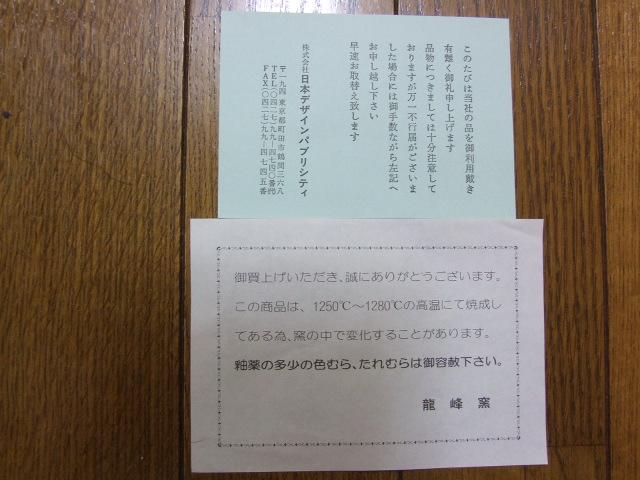 このたびは当社の品を御利用戴き
有難く御礼申し上げます
品物につきましては十分注意して
おりますが万一不行届がございま
した場合には御手数ながら左記へ
お申し越し下さい
早速お取替え致します
株式会社 日本デザインパブリシティ
〒一九四 東京都町田市鶴間三六八
TEL(〇四二七)九九―四七四〇番㈹
FAX(〇四二七)九九―四七四五番
御買上げいただき、誠にありがとうございます。
この商品は、1250℃〜1280℃の高温にて焼成し
てある為、窯の中で変化することがあります。
釉薬の多少の色むら、たれむらは御容赦下さい。
龍峰窯